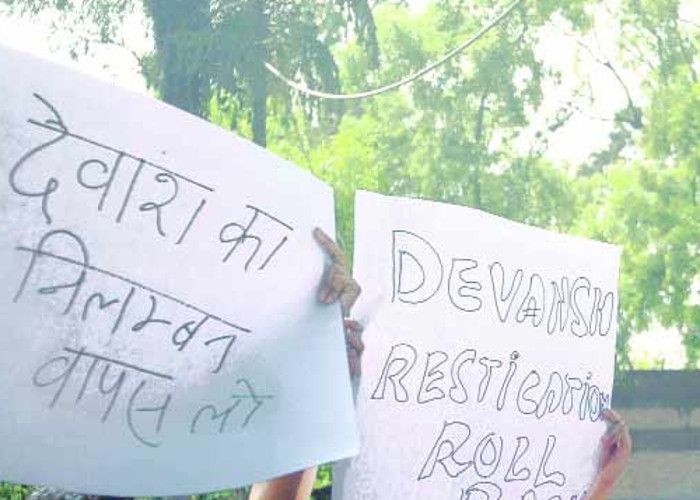 देवांश का
निलम्बन
वापस लो
DEVANSH
RESTICATION
ROLL